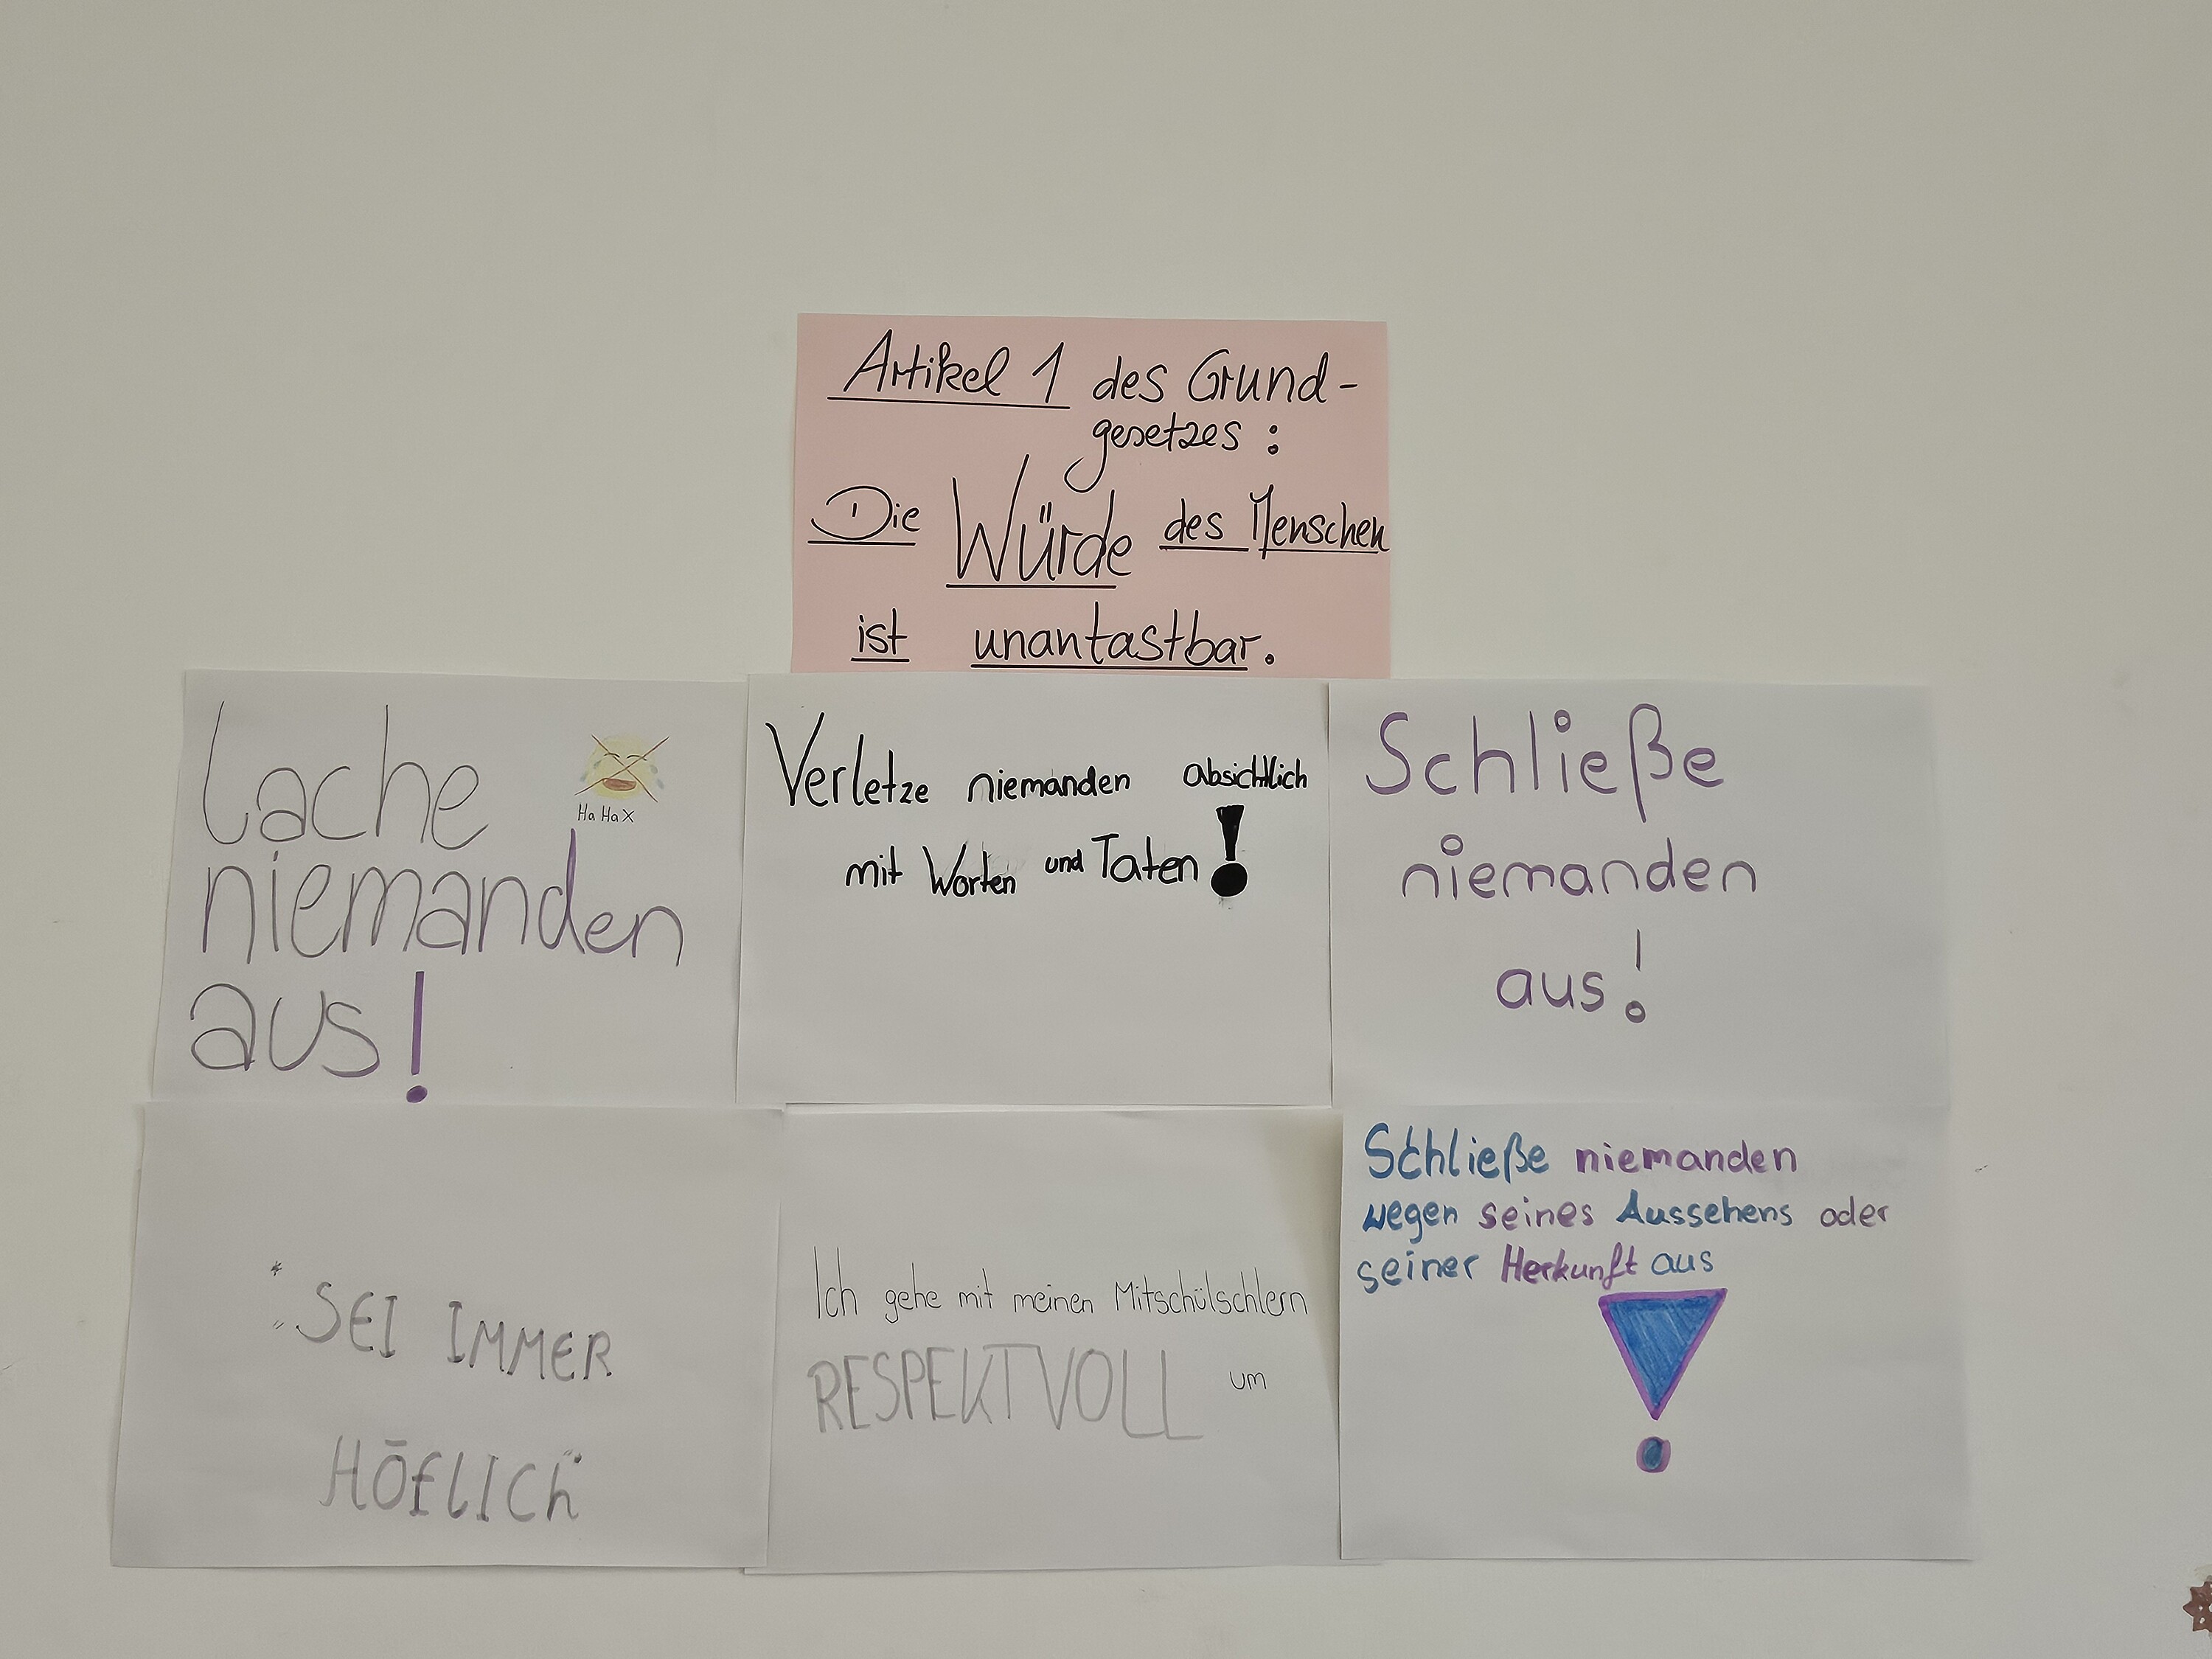 Artikel 1 des Grund-
gesetzes :
Die Würde des Menschen
ist unantastbar.
Lache
niemanden
aus!
Ha Ha X
Verletze niemanden absichtlich
mit Worten und Taten!
Schließe
niemanden
aus!
SEI IMMER
HÖFLICh
Ich gehe mit meinen Mitschülschlern
RESPEKTVOLL um
Schließe niemanden
wegen seines Aussehens oder
seiner Herkunft aus
!